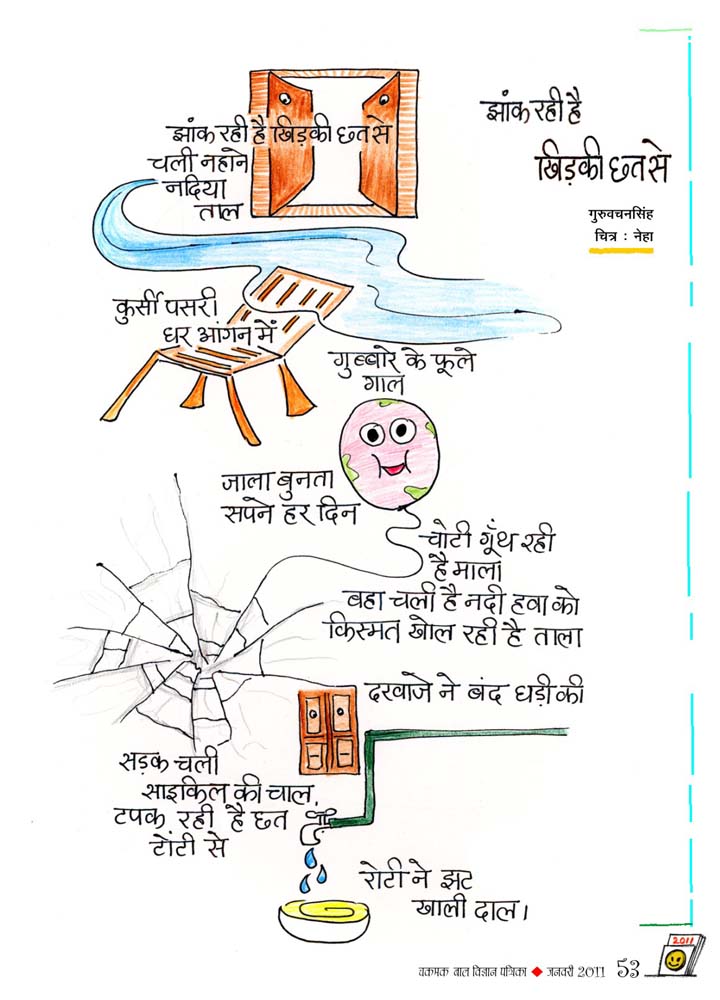 झांक रही है
खिड़की छत से
गुरुवचनसिंह
चित्र : नेहा
झांक रही है खिड़की छत से
चली नहाने
नदिया
ताल
कुर्सी पसरी
घर आंगन में
गुब्बारे के फूले
गाल
जाला बुनता
सपने हर दिन
चोटी गूँथ रही
है माला
बहा चली है नदी हवा को
किस्मत खोल रही है ताला
दरवाजे ने बंद घड़ी की
सड़क चली
साइकिल की चाल,
टपक रही है छत
टोंटी से
रोटी ने झट
खाली दाल।
2011
चकमक बाल विज्ञान पत्रिका ◆ जनवरी 2011 53